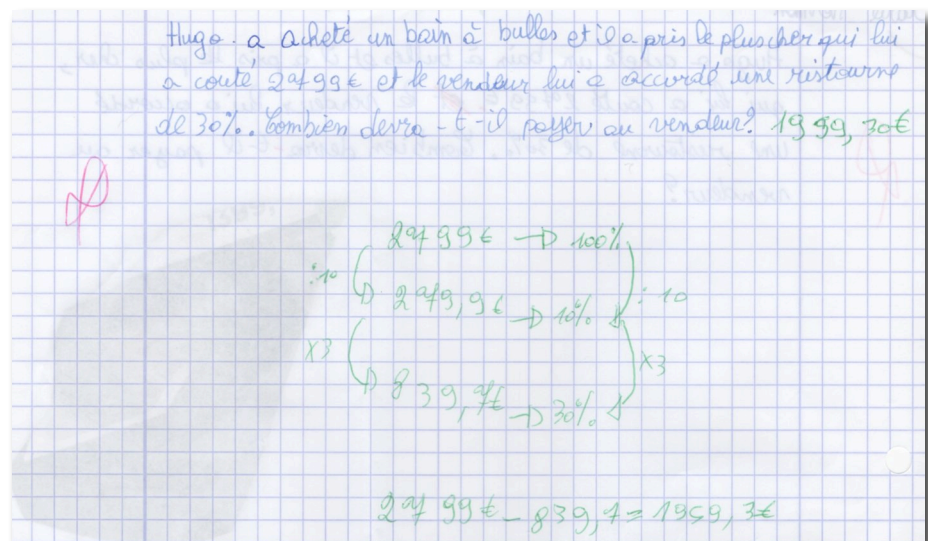 Hugo. a acheté un bain à bulles et il a pris le plus cher qui lui
a couté 2799€ et le vendeur lui a accordé une ristourne
de 30%. Combien devra-t-il payer au vendeur? 1959,30€
2799€ → 100%
:10 :10
279,9€ → 10%
X3 X3
839,7€ → 30%
2799€ - 839,7 = 1959,3€